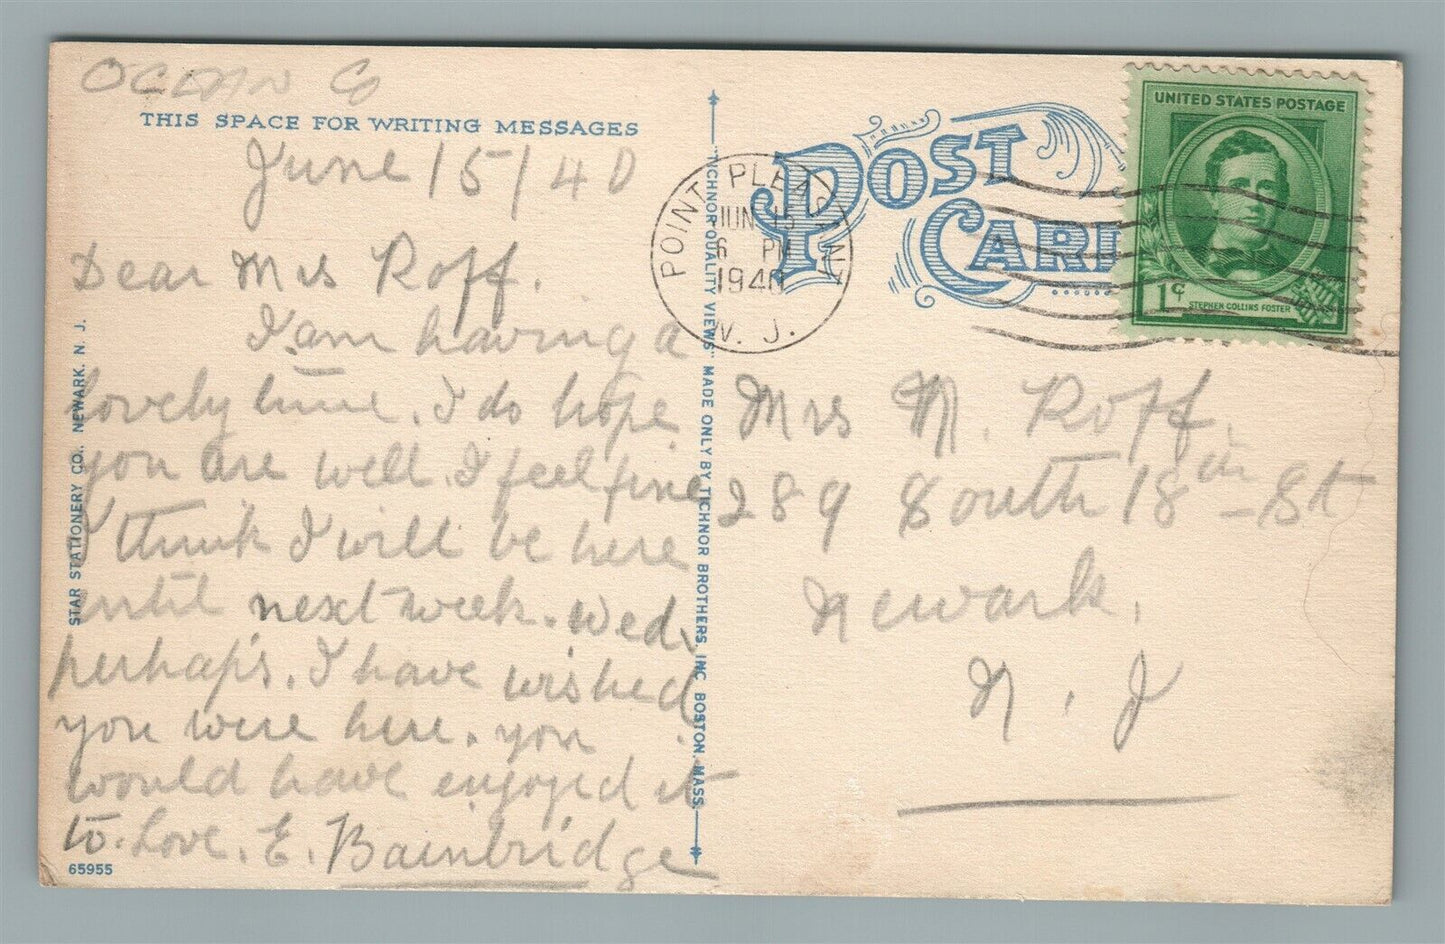 OCEAN Co
THIS SPACE FOR WRITING MESSAGES
June 15/40
Dear Mrs Roff.
I am having a
lovely time. I do hope
you are well. I feel fine
I think I will be here
until next week. Wed.
perhaps. I have wished
you were here. you
would have enjoyed it
to. Love. E. Bainbridge
65955
STAR STATIONERY CO., NEWARK, N. J.
"TICHNOR QUALITY VIEWS" MADE ONLY BY TICHNOR BROTHERS, INC. BOSTON, MASS.
POST CARD
POINT PLEASANT
JUN 15
6 PM
1940
N. J.
UNITED STATES POSTAGE
1¢
STEPHEN COLLINS FOSTER
Mrs M. Roff.
289 South 18th St
Newark.
N. J